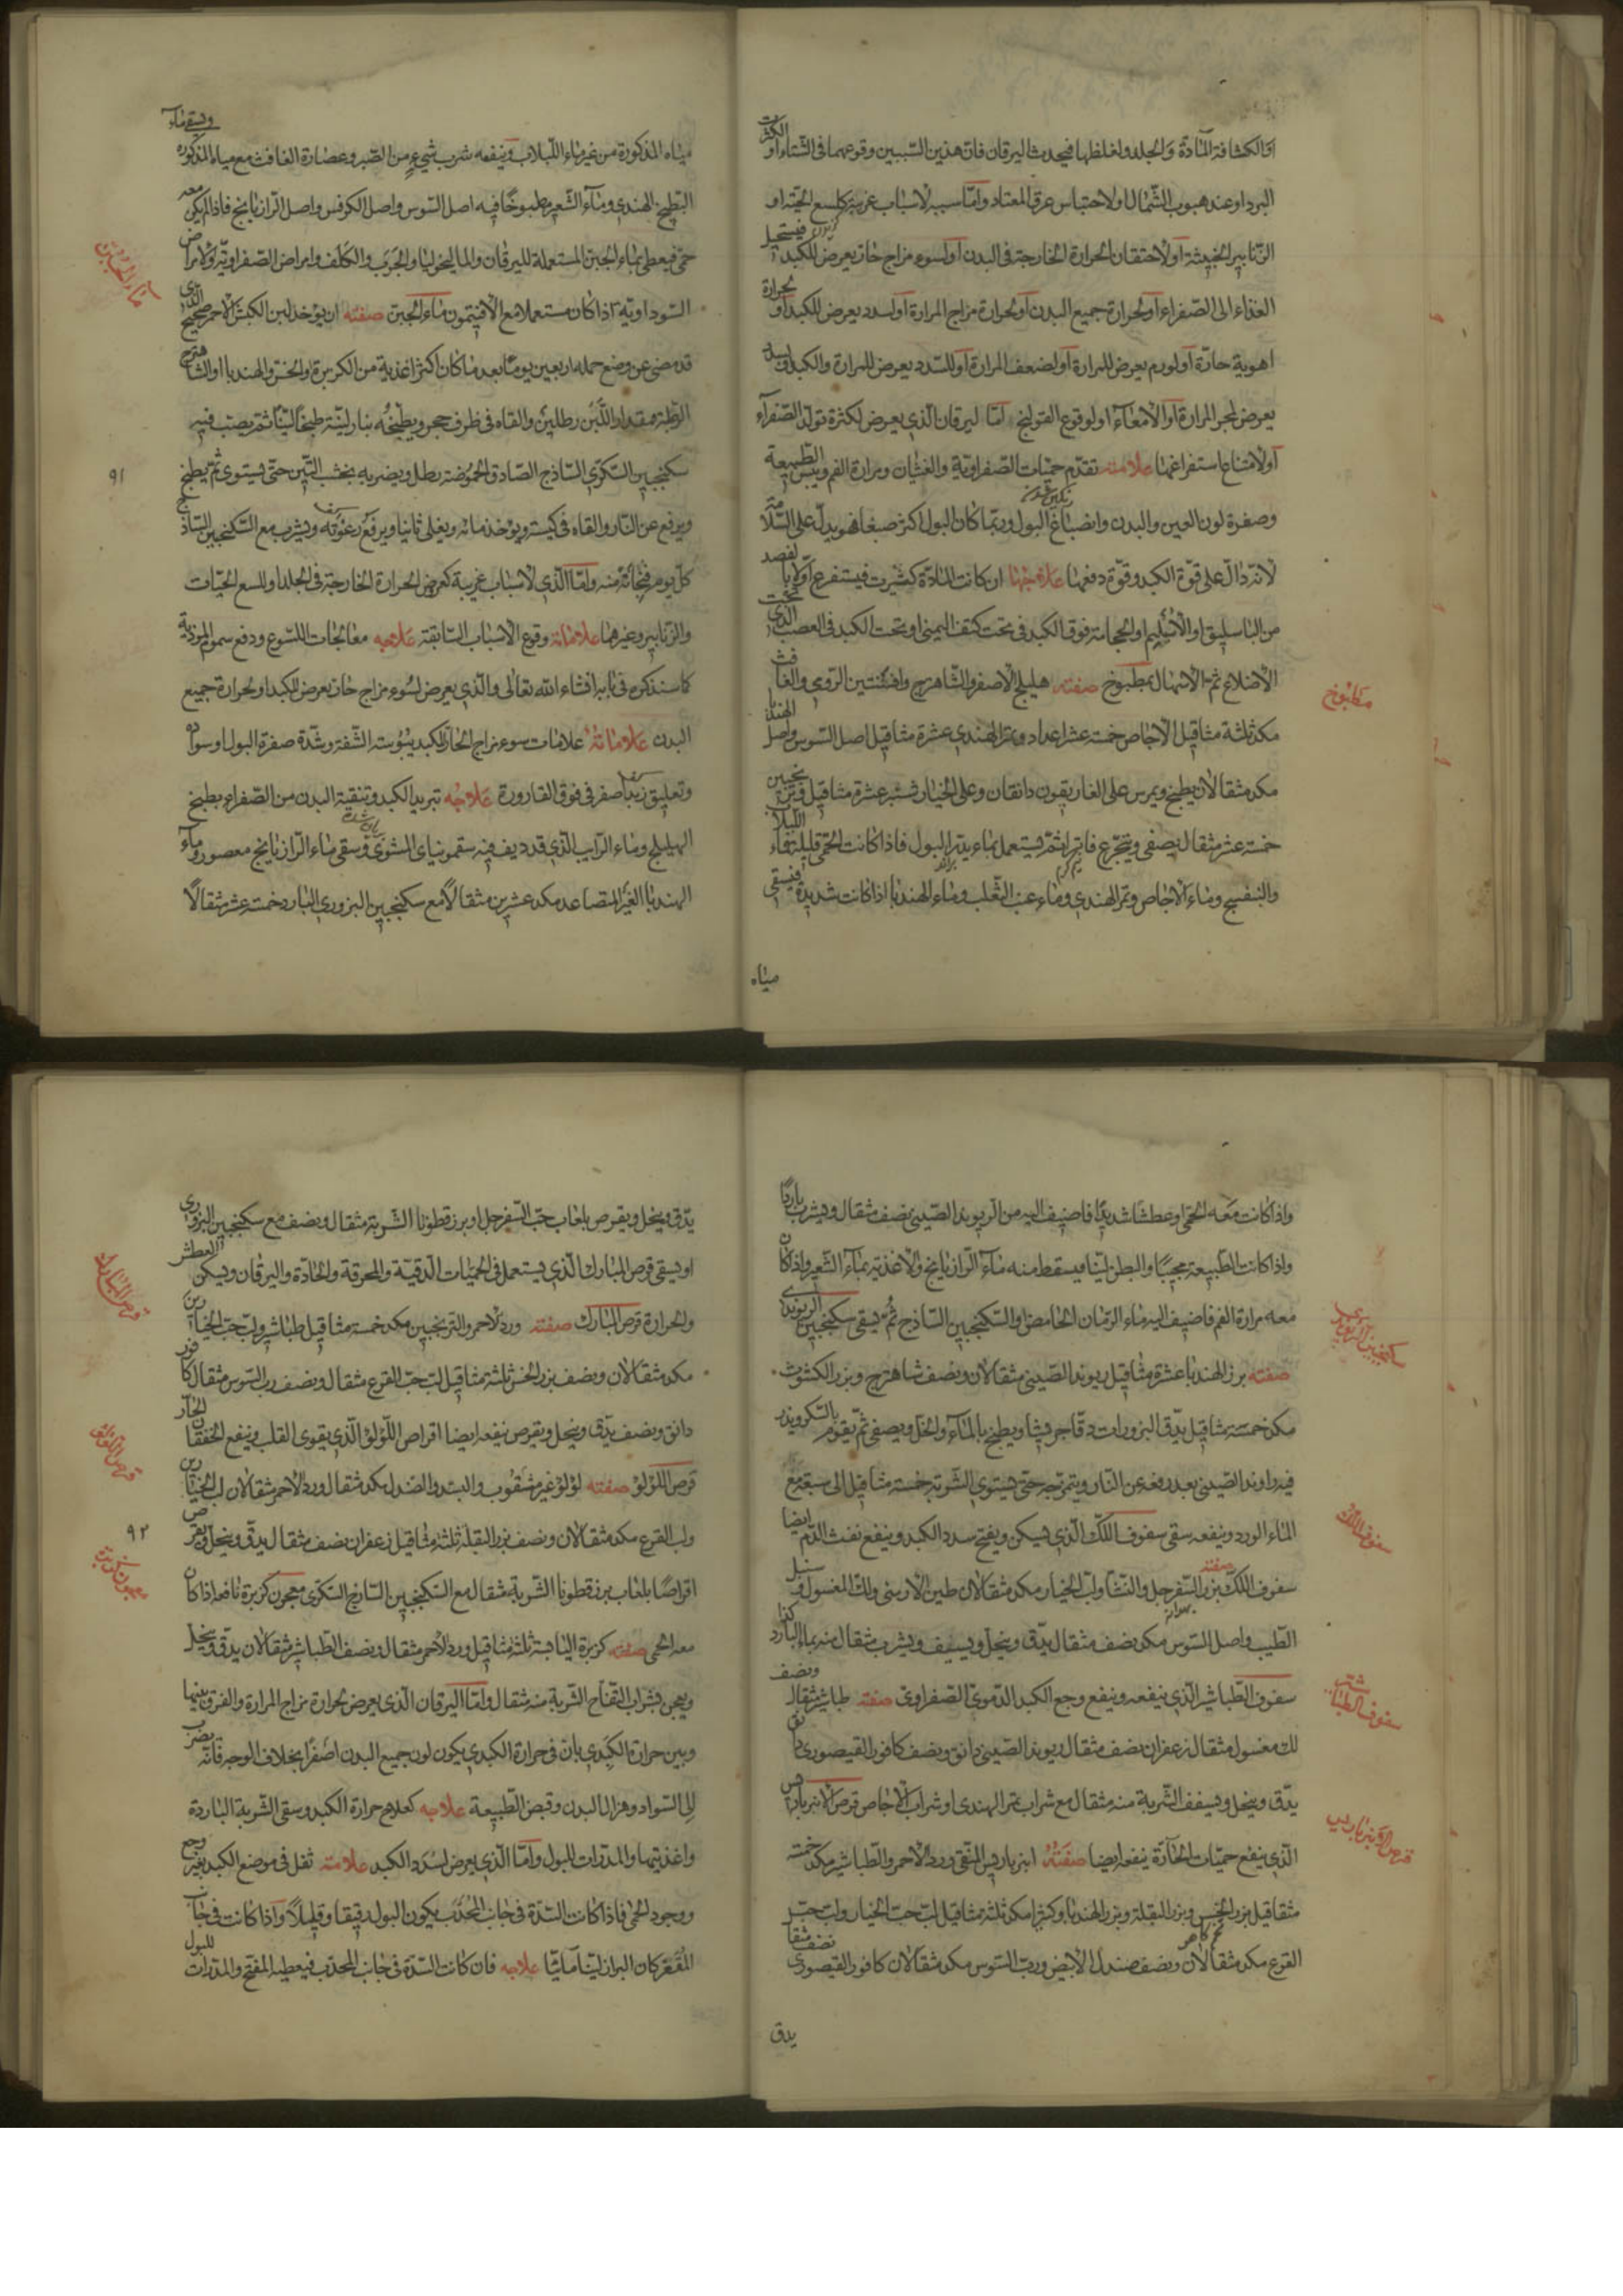 او الكثافة المادة والجلد ولغلظها فيحدث اليرقان فان هذين السببين وقوعهما فى الشتاء او الكثرت
البرد او عند هبوب الشمال او لاحتباس عرق المعتاد وامّا سببه لاسباب غريبة كلسع الحيّة او
الزنابير الخبيثة او لاحتقان الحرارة الخارجة فى البدن او لسوء مزاج حارّ يعرض للكبد فيستحيل
الغذاء الى الصفراء او لحرارة جميع البدن او لحرارة مزاج المرارة او لسدد يعرض للكبد او لحرارة
اهوية حادّة او لورم يعرض للمرارة او لضعف المرارة او للسدد يعرض للمرارة والكبد
يعرض لمجر المرارة او الامعاء او لوقوع القولنج امّا ليرقان الّذى يعرض لكثرة تولّد الصّفرآء
او لامتناع استفراغها علامته تقدّم حميّات الصّفراويّة والغثيان ومرارة الفم ويبس الطّبيعة
وصفرة لون العين والبدن وانصباغ البول وربّما كان البول اكثر صبغا فهو يدلّ على السّلامة
لانّه دالّ على قوّة الكبد وقوّة دفعها علاجها ان كانت المادّة كثيرت فيستفرغ اوّلا بالفصد
من الباسليق او الاُسَيلِم او الحجامة فوق الكبد فى تحت كتف اليمنى او تحت الكبد فى العصب الّذى تحت
الاضلاع ثمّ الاسهال بمطبوخ صفته هليلج الاصفر والشّاهترج وافسنتين الرّومى والغافث
مكد ثلثة مثاقيل الاجاص خمسة عشر اعداد وتمر الهندى عشرة مثاقيل اصل السّوس واصل الهندبا
مكد مثقالان يطبخ ويمرس على الغاريقون دانقان وعلى الخيار شنبر عشرة مثاقيل وترنجبين
خمسة عشر مثقال يصفى ويتجرّع فاترا ثمّ يستعمل بماء يدرّ البول فاذا كانت الحمّى قليلة فماء اللبلاب
والبنفسج وماء الاجاص وتمر الهندى وماء عنب الثّعلب وماء الهندبا اذا كانت شديدة فيسقى
مياه
مطبوخ
مياه المذكورة من غير ماء اللّبلاب وينفعه شرب شىءٍ من الصّبر وعصارة الغافث مع مياه المذكوره ويسقى ماء
البّطيخ الهندى وماء الشّعير مطبوخًا فيه اصل السّوس واصل الكرفس واصل الرّازيانج فاذا لم يكن معه
حمّى فيعطى بماء الجبن المستعملة لليرقان والماليخوليا والجرب والكلف وامراض الصّفراويّة ولامراض
السّوداويّة اذا كان مستعملا مع الافتيمون ماء الجبن صفته ان يؤخذ لبن الكبش الاحمر صحيح الذى
قد مضى عن وضع حمله اربعين يومًا بعد ما كان اكثر اغذية من الكزبرة والخسّ والهندبا او الشاهترج
الرّطبة مقدار اللّبن رطلين والقاه فى ظرف حجر ويطبخُه بنار ليّنة طبخًا ليّنًا ثمّ يصبّ فيه
سكنجبين السّكّرى السّاذج الصّادق الحموُضة رطل ويضربه بخشب التّين حتّى يستوى ثمّ يطبخ
ويرفع عن النّار والقاه فى كيسة ويؤخذ مائه ويغلى ثانيا ويرفع رغوته ويشرب مع السّكنجبين السّاذج
كلّ يوم فنجانة منه وامّا الّذى لاسباب غريبة كعرض الحرارة الخارجة فى الجلد او للسع الحيّات
والزّنابير وغيرهما علاماته وقوع الاسباب السّابقة علاجه معالجات اللّسوع ودفع سموم الموذية
كما سنذكره فى بابه انشاء الله تعالى والّذى يعرض لسُوء مزاج حارّ يعرض للكبد او لحرارة جميع
البدن علاماته علامات سوء مزاج الحارّ للكبد يبُوسة الشّفة وشدّة صفرة البول او سواده
وتعليق زبد اصفر فى فوق القارورة علاجُه تبريد الكبد وتنقية البدن من الصّفراء بطبخ
الهليلج وماء الرّايب الّذى قد ديف فيه سقمونياى المشوى وسقى ماء الرّازيانج معصور وماء
الهندبا الغير المتصاعد مكد عشرين مثقالاً مع سكنجبين البزورى البارد خمسة عشر مثقالاً
ماء الجبن
٩١
واذا كانت معه الحمّى وعطشا شديدًا فاضيف اليه من الرّيوند الصّينى نصف مثقال ويشرب باردًا
واذا كانت الطّبيعة مجيبًا والبطن ليّنا فيسقط منه ماء الرّازيانج والاغذية بماء الشّعير واذا كان
معه مرارة الفم فاضيف اليه ماء الرّمان الحامض والسّكنجبين السّاذج ثمّ يسقى سكنجبين الريوندى
صفته بزر الهندبا عشرة مثاقيل ريوند الصّينى مثقالان ونصف شاهترج وبزر الكشوث
مكد خمسة مثاقيل يدّق البزورات دقّا جريشا ويطبخ بالماء والخلّ ويصفى ثمّ يقوم بالسّكر ويذر
فيه راوند الصّينى بعد رفعه عن النّار ويتمزّجه حتّى يستوى الشّربة خمسة مثاقيل الى سبعة مع
الماء الورد وينفعه سقى سفوف اللّكّ الّذى يسكن ويفتح سدد الكبد وينفع نفث الدّم ايضا
سفوف اللكّ صفته بزر السّفرجل والنّشا ولبّ الخيار مكد مثقالان طين الارمنى ولكّ المغسول وسنبل
الطّيب واصل السّوس مكد نصف مثقال يدّق وينخل ويسفف ويشرب مثقال منه بماء البارد
سفوف الطّباشير الّذى ينفعه وينفع وجع الكبد الدّموىّ الصّفراوىّ صفته طباشير مثقال ونصف
لك مغسول مثقال زعفران نصف مثقال ريوند الصّينى دانق ونصف كافور القيصورى دانق
يدّق وينخل ويسفف الشّربة منه مثقال مع شراب تمر الهندى او شراب الاجاص قرص الانبرباريس
الّذى ينفع حميّات الحادّة ينفعه ايضا صفتُه انبرباريس المنقى وورد الاحمر والطّباشير مكد خمسة
مثاقيل بزر الخسّ وبزر البقلة وبزر الهندبا وكتيرا مكد ثلثة مثاقيل لبّ حبّ الخيار ولبّ حبّ
القرع مكد مثقالان ونصف صندل الابيض وربّ السّوس مكد مثقالان كافور القيصورى نصف مثقال
يدق
سكنجبين الريوندى
سفوف اللّك
سفوف الطباشير
قرص الانبرباريس
يدّق وينخل ويقرص بلعاب حبّ السّفرجل او بزر قطونا الشّربة مثقال ونصف مع سكنجبين البزورى
او يسقى قرص المبارك الّذى يستعمل فى الحميّات الدّقيّة والمحرقة والحادّة واليرقان ويسكن العطش
والحرارة قرص المبارك صفته ورد الاحمر والترنجبين مكد خمسة مثاقيل طباشير ولبّ حبّ الخيارين
مكد مثقالان ونصف بزر الخسّ ثلثة مثاقيل لبّ حبّ القرع مثقال ونصف ربّ السّوس مثقال كافور
دانق ونصف يدّق وينخل ويقرص ينفعه ايضا اقراص اللّؤلؤ الّذى يقوى القلب وينفع الخفقان الحارّ
قرص اللؤلؤ صفته لؤلؤ غير مثقُوب والبسد والصّندل مكد مثقال ورد الاحمر مثقالان لبّ الخيارين
ولب القرع مكد مثقالان ونصف بزر البقلة ثلثة مثاقيل زعفران نصف مثقال يدّق وينخل ويقرص
اقراصًا بلعاب بزر قطونا الشّربة مثقال مع السّكنجبين السّاذج السّكرى معجون كزبرة نافعة اذا كان
معه الحمى صفته كزبرة اليابسة ثلثة مثاقيل ورد الاحمر مثقال ونصف الطّباشير مثقالان يدّق وينخل
ويعجن بشراب التّفاح الشّربة منه مثقال وامّا اليرقان الّذى يعرض لحرارة مزاج المرارة والفرق بينها
وبين حرارة الكبدى بان فى حرارة الكبدى يكون لون جميع البدن اصفرًا بخلاف الوجه فانّه يضرب
الى السّواد وهزال البدن وقبض الطّبيعة علاجه كعلاج حرارة الكبد وسقى الشّربة الباردة
واغذيتها والمدرّات للبول وامّا الّذى يعرض لسُدد الكبد علامته ثقل فى موضع الكبد بغير وجع
ووجود الحمّى فاذا كانت السّدّة فى جانب المُحدّب يكون البول رقيقا وقليلاً واذا كانت فى جانب
المُقعّر كان البراز ليّنا مائيّا علاجه فان كانت السّدّة فى جانب المحدّب فيعطيه المفتح والمدرّات للبول
قرص المبارك
قرص اللؤلؤ
٩٢
معجون كزبرة